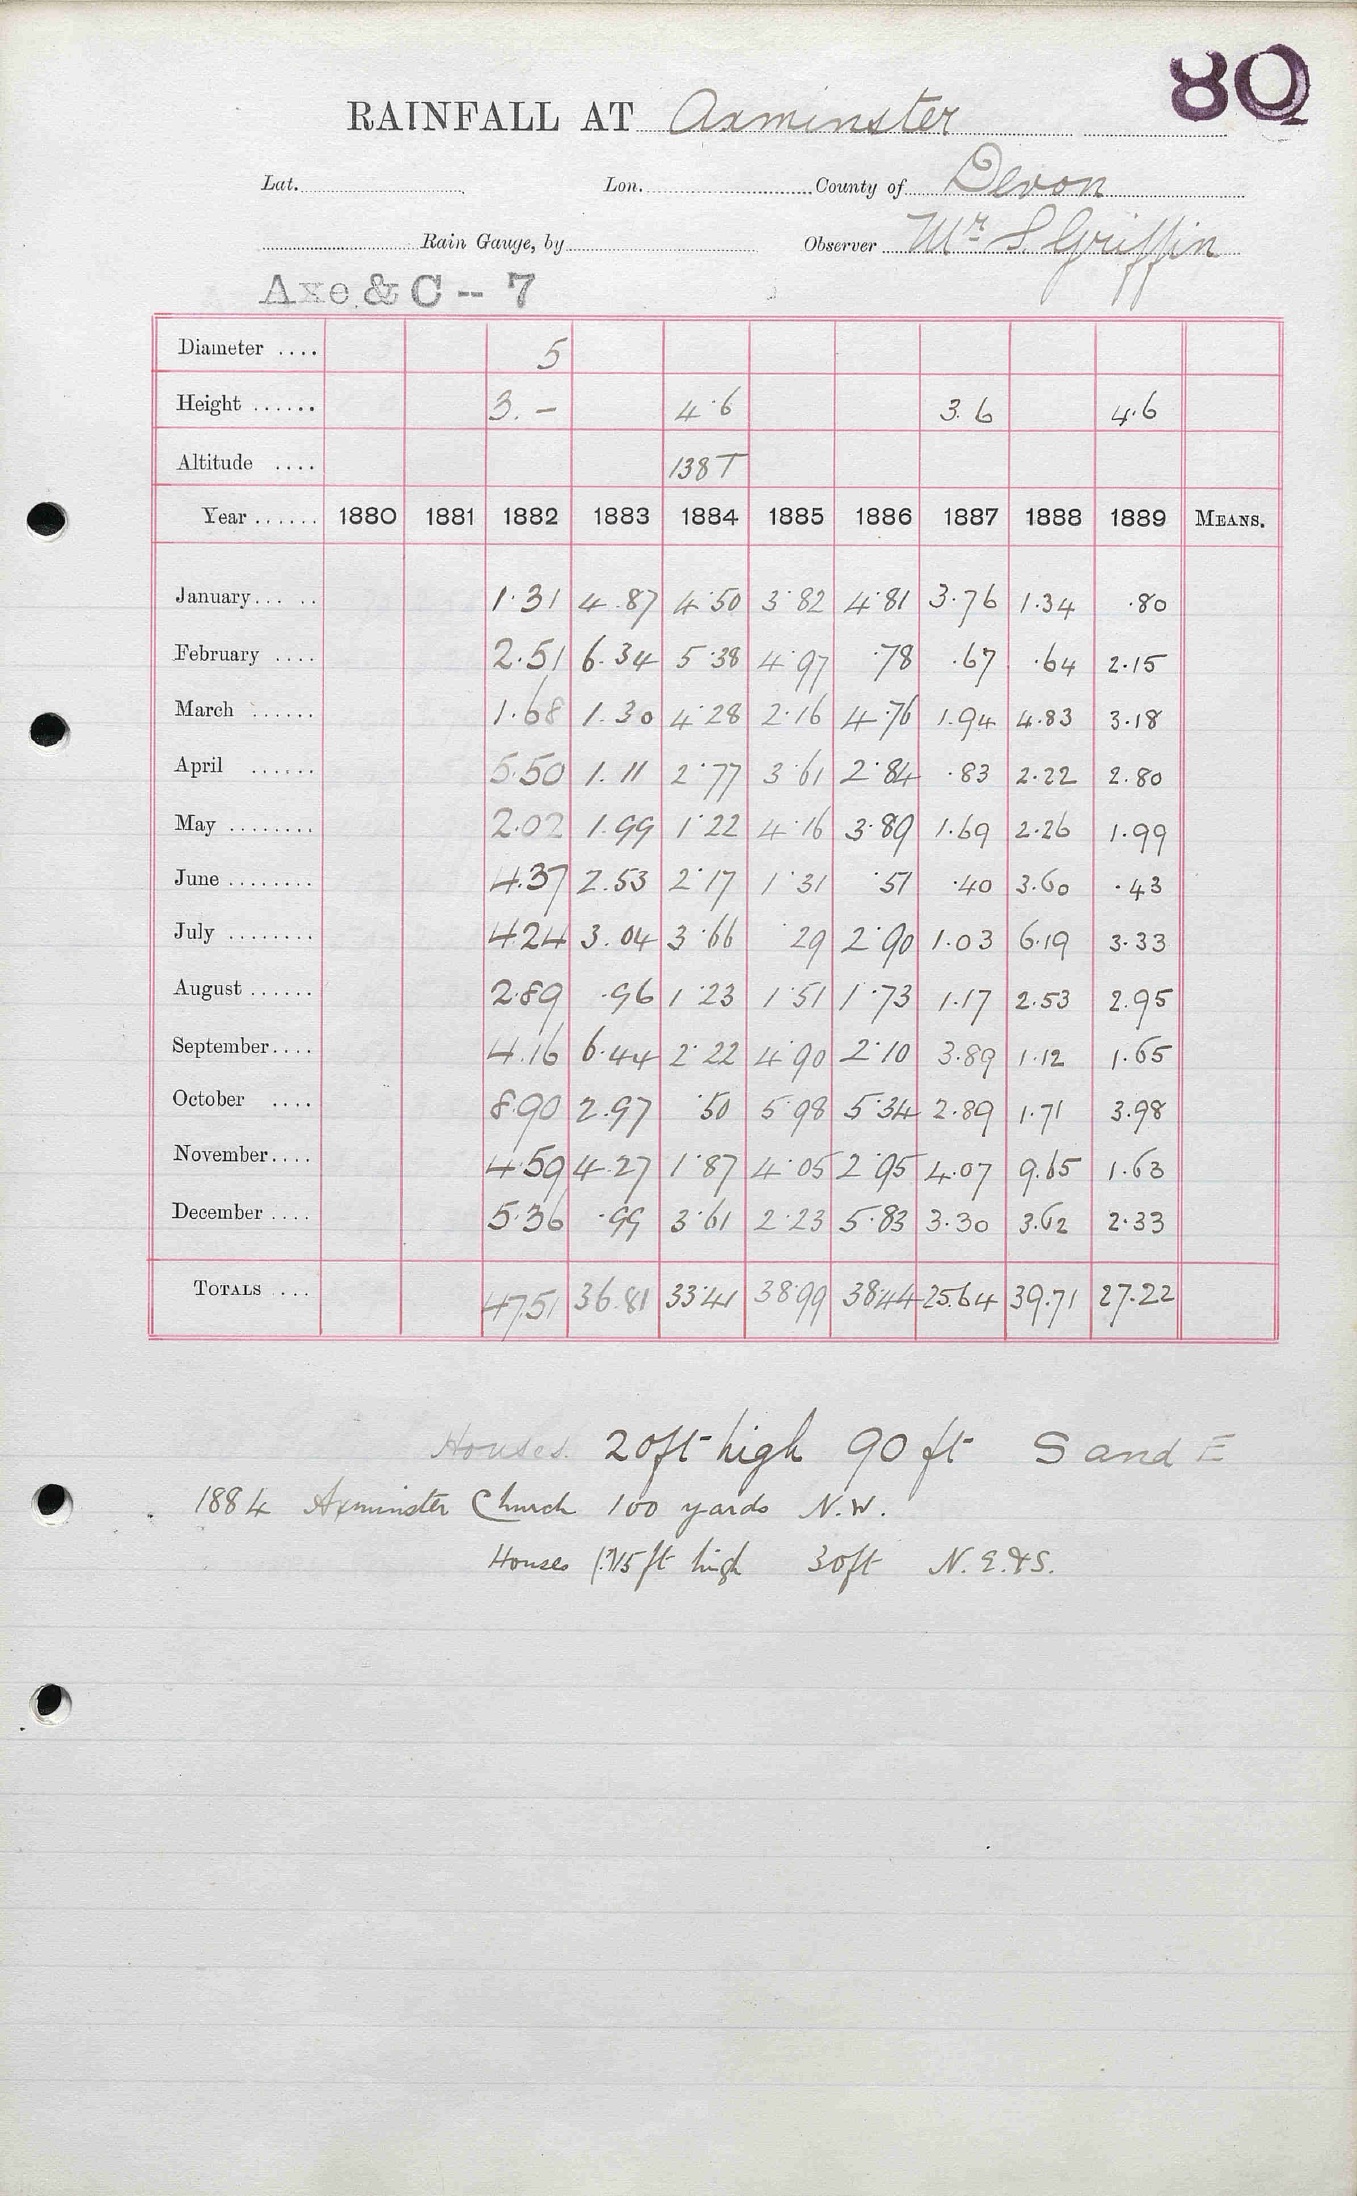 80
RAINFALL AT Axminster
Lat. Lon. County of Devon
Rain Gauge, by Observer Mr. S. Griffin
Axe & C -- 7
Diameter .... 5
Height ...... 3. – 4·6 3.6 4.6
Altitude .... 138T
Year ...... 1880 1881 1882 1883 1884 1885 1886 1887 1888 1889 MEANS.
January... .. 1·31 4.87 4·50 3·82 4·81 3.76 1.34 .80
February .... 2.51 6.34 5·38 4·97 ·78 .67 .64 2.15
March ...... 1.68 1.30 4·28 2·16 4·76 1.94 4.83 3.18
April ...... 5.50 1.11 2·77 3·61 2·84 .83 2.22 2.80
May ........ 2.02 1.99 1·22 4·16 3·89 1.69 2.26 1.99
June ........ 4.37 2.53 2·17 1·31 ·51 .40 3.60 .43
July ........ 4.24 3.04 3·66 ·29 2·90 1.03 6.19 3.33
August ...... 2.89 .96 1·23 1·51 1·73 1.17 2.53 2.95
September.... 4.16 6.44 2·22 4·90 2·10 3.89 1.12 1.65
October .... 8.90 2.97 ·50 5·98 5·34 2.89 1.71 3.98
November.... 4.59 4.27 1·87 4·05 2·95 4.07 9.65 1.63
December .... 5.36 .99 3·61 2·23 5·83 3.30 3.62 2.33
TOTALS ... 47.51 36.81 33·41 38·99 38·44 25.64 39.71 27.22
Houses. 20ft high 90 ft S and E
1884 Axminster Church 100 yards N.W.
Houses (?)15 ft high 30ft N. E. & S.